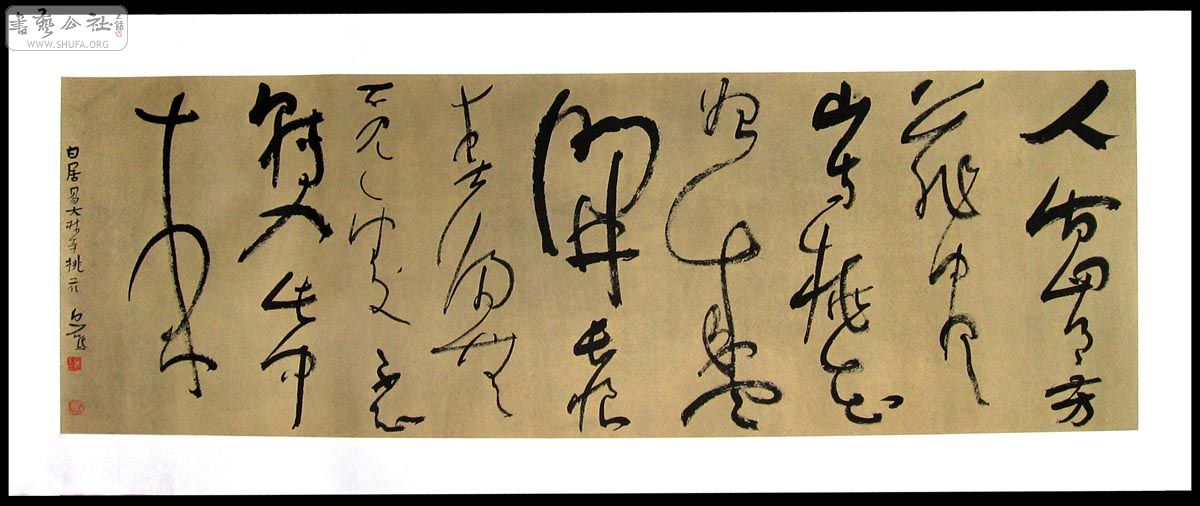 書藝公社
WWW.SHUFA.ORG
人間四月芳
菲盡
山寺桃花
始盛
開長恨
春歸無
覓處不知
轉入此中
來
白居易大林寺桃花